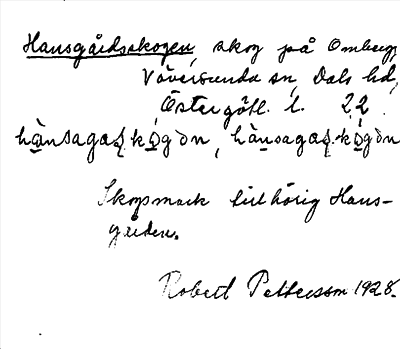 Hansgårdsskogen, skog på Omberg,
Väversunda sn, Dals hd,
Östergötl. l. 22.
hànsagaṣkògǝn, hànsagaṣkògǝn
Skogsmark tillhörig Hans-
gården.
Robert Pettersson 1928.